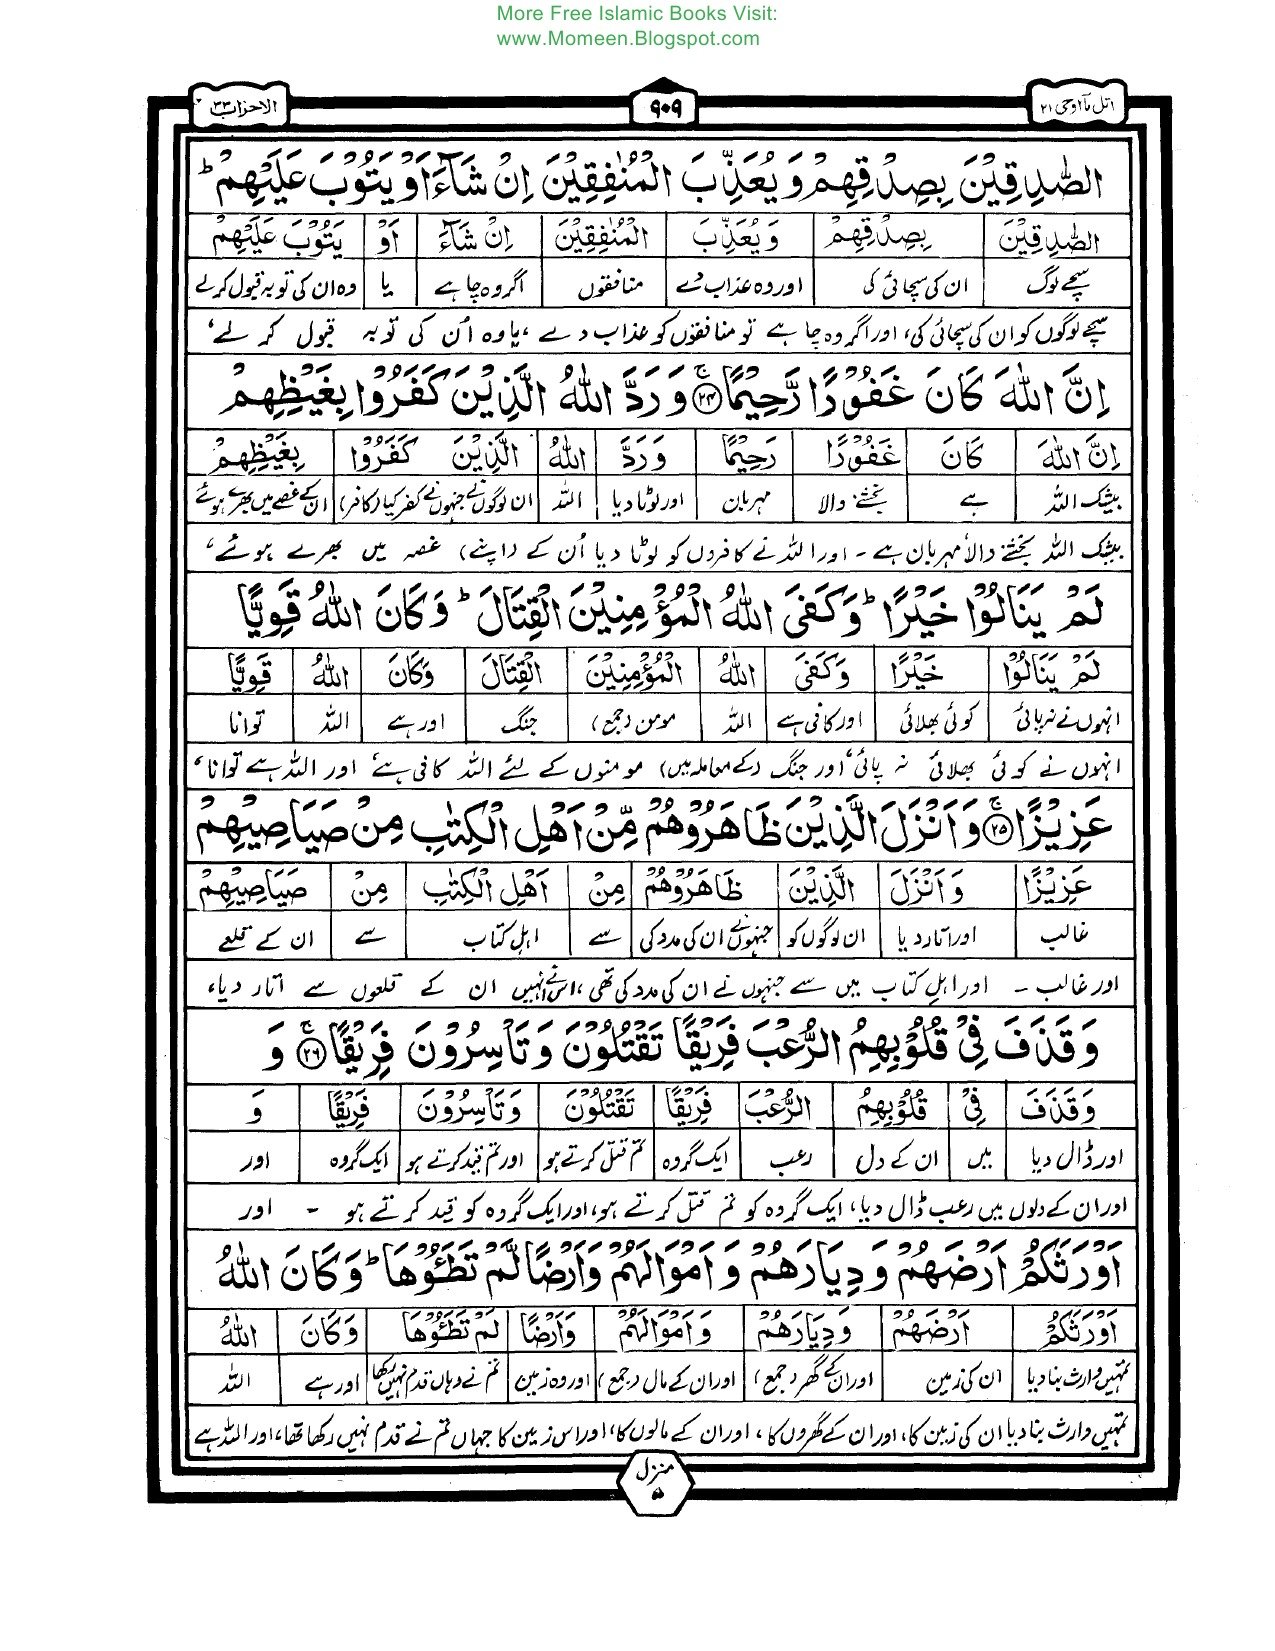 More Free Islamic Books Visit:
www.Momeen.Blogspot.com
اتل مآ اوحی ۲۱
۹۰۹
الاحزاب ۳۳
الصّٰدِقِيْنَ بِصِدْقِهِمْ وَ يُعَذِّبَ الْمُنٰفِقِيْنَ اِنْ شَآءَ اَوْ يَتُوْبَ عَلَيْهِمْ ؕ
الصّٰدِقِيْنَ بِصِدْقِهِمْ وَ يُعَذِّبَ الْمُنٰفِقِيْنَ اِنْ شَآءَ اَوْ يَتُوْبَ عَلَيْهِمْ
سچے لوگ ان کی سچائی کی اور وہ عذاب دے منافقوں اگر وہ چاہے یا وہ ان کی توبہ قبول کرلے
سچے لوگوں کو ان کی سچائی کی، اور اگر وہ چاہے تو منافقوں کو عذاب دے، یا وہ اُن کی توبہ قبول کر لے،
اِنَّ اللّٰهَ كَانَ غَفُوْرًا رَّحِيْمًا ۚ۲۴ وَ رَدَّ اللّٰهُ الَّذِيْنَ كَفَرُوْا بِغَيْظِهِمْ
اِنَّ اللّٰهَ كَانَ غَفُوْرًا رَحِيْمًا وَ رَدَّ اللّٰهُ الَّذِيْنَ كَفَرُوْا بِغَيْظِهِمْ
بیشک اللہ ہے بخشنے والا مہربان اور لوٹا دیا اللہ ان لوگوں نے جنہوں نے کفر کیا (کافر) ان کے غصے میں بھرے ہوئے
بیشک اللہ بخشنے والا مہربان ہے ۔ اور اللہ نے کافروں کو لوٹا دیا اُن کے (اپنے) غصہ میں بھرے ہوئے،
لَمْ يَنَالُوْا خَيْرًا ؕ وَ كَفَى اللّٰهُ الْمُؤْمِنِيْنَ الْقِتَالَ ؕ وَ كَانَ اللّٰهُ قَوِيًّا
لَمْ يَنَالُوْا خَيْرًا وَ كَفَى اللّٰهُ الْمُؤْمِنِيْنَ الْقِتَالَ وَ كَانَ اللّٰهُ قَوِيًّا
انہوں نے نہ پائی کوئی بھلائی اور کافی ہے اللہ مومن (جمع) جنگ اور ہے اللہ توانا
انہوں نے کوئی بھلائی نہ پائی، اور جنگ (کے معاملہ میں) مومنوں کے لئے اللہ کافی ہے، اور اللہ ہے توانا،
عَزِيْزًا ۚ۲۵ وَ اَنْزَلَ الَّذِيْنَ ظَاهَرُوْهُمْ مِّنْ اَهْلِ الْكِتٰبِ مِنْ صَيَاصِيْهِمْ
عَزِيْزًا وَ اَنْزَلَ الَّذِيْنَ ظَاهَرُوْهُمْ مِنْ اَهْلِ الْكِتٰبِ مِنْ صَيَاصِيْهِمْ
غالب اور اتار دیا ان لوگوں کو جنہوں نے ان کی مدد کی سے اہل کتاب سے ان کے قلعے
اور غالب ۔ اور اہلِ کتاب میں سے جنہوں نے ان کی مدد کی تھی، اس نے انہیں ان کے قلعوں سے اتار دیا،
وَ قَذَفَ فِيْ قُلُوْبِهِمُ الرُّعْبَ فَرِيْقًا تَقْتُلُوْنَ وَ تَاْسِرُوْنَ فَرِيْقًا ۚ۲۶ وَ
وَ قَذَفَ فِيْ قُلُوْبِهِمُ الرُّعْبَ فَرِيْقًا تَقْتُلُوْنَ وَ تَاْسِرُوْنَ فَرِيْقًا وَ
اور ڈال دیا میں ان کے دل رعب ایک گروہ تم قتل کرتے ہو اور تم قید کرتے ہو ایک گروہ اور
اور ان کے دلوں میں رعب ڈال دیا، ایک گروہ کو تم قتل کرتے ہو، اور ایک گروہ کو قید کرتے ہو ۔ اور
اَوْرَثَكُمْ اَرْضَهُمْ وَ دِيَارَهُمْ وَ اَمْوَالَهُمْ وَ اَرْضًا لَّمْ تَطَـُٔوْهَا ؕ وَ كَانَ اللّٰهُ
اَوْرَثَكُمْ اَرْضَهُمْ وَ دِيَارَهُمْ وَ اَمْوَالَهُمْ وَ اَرْضًا لَمْ تَطَـُٔوْهَا وَ كَانَ اللّٰهُ
تمہیں وارث بنا دیا ان کی زمین اور ان کے گھر (جمع) اور ان کے مال (جمع) اور وہ زمین تم نے وہاں قدم نہیں رکھا اور ہے اللہ
تمہیں وارث بنا دیا ان کی زمین کا، اور ان کے گھروں کا، اور ان کے مالوں کا، اور اس زمین کا جہاں تم نے قدم نہیں رکھا تھا، اور اللہ ہے
منزل ۵